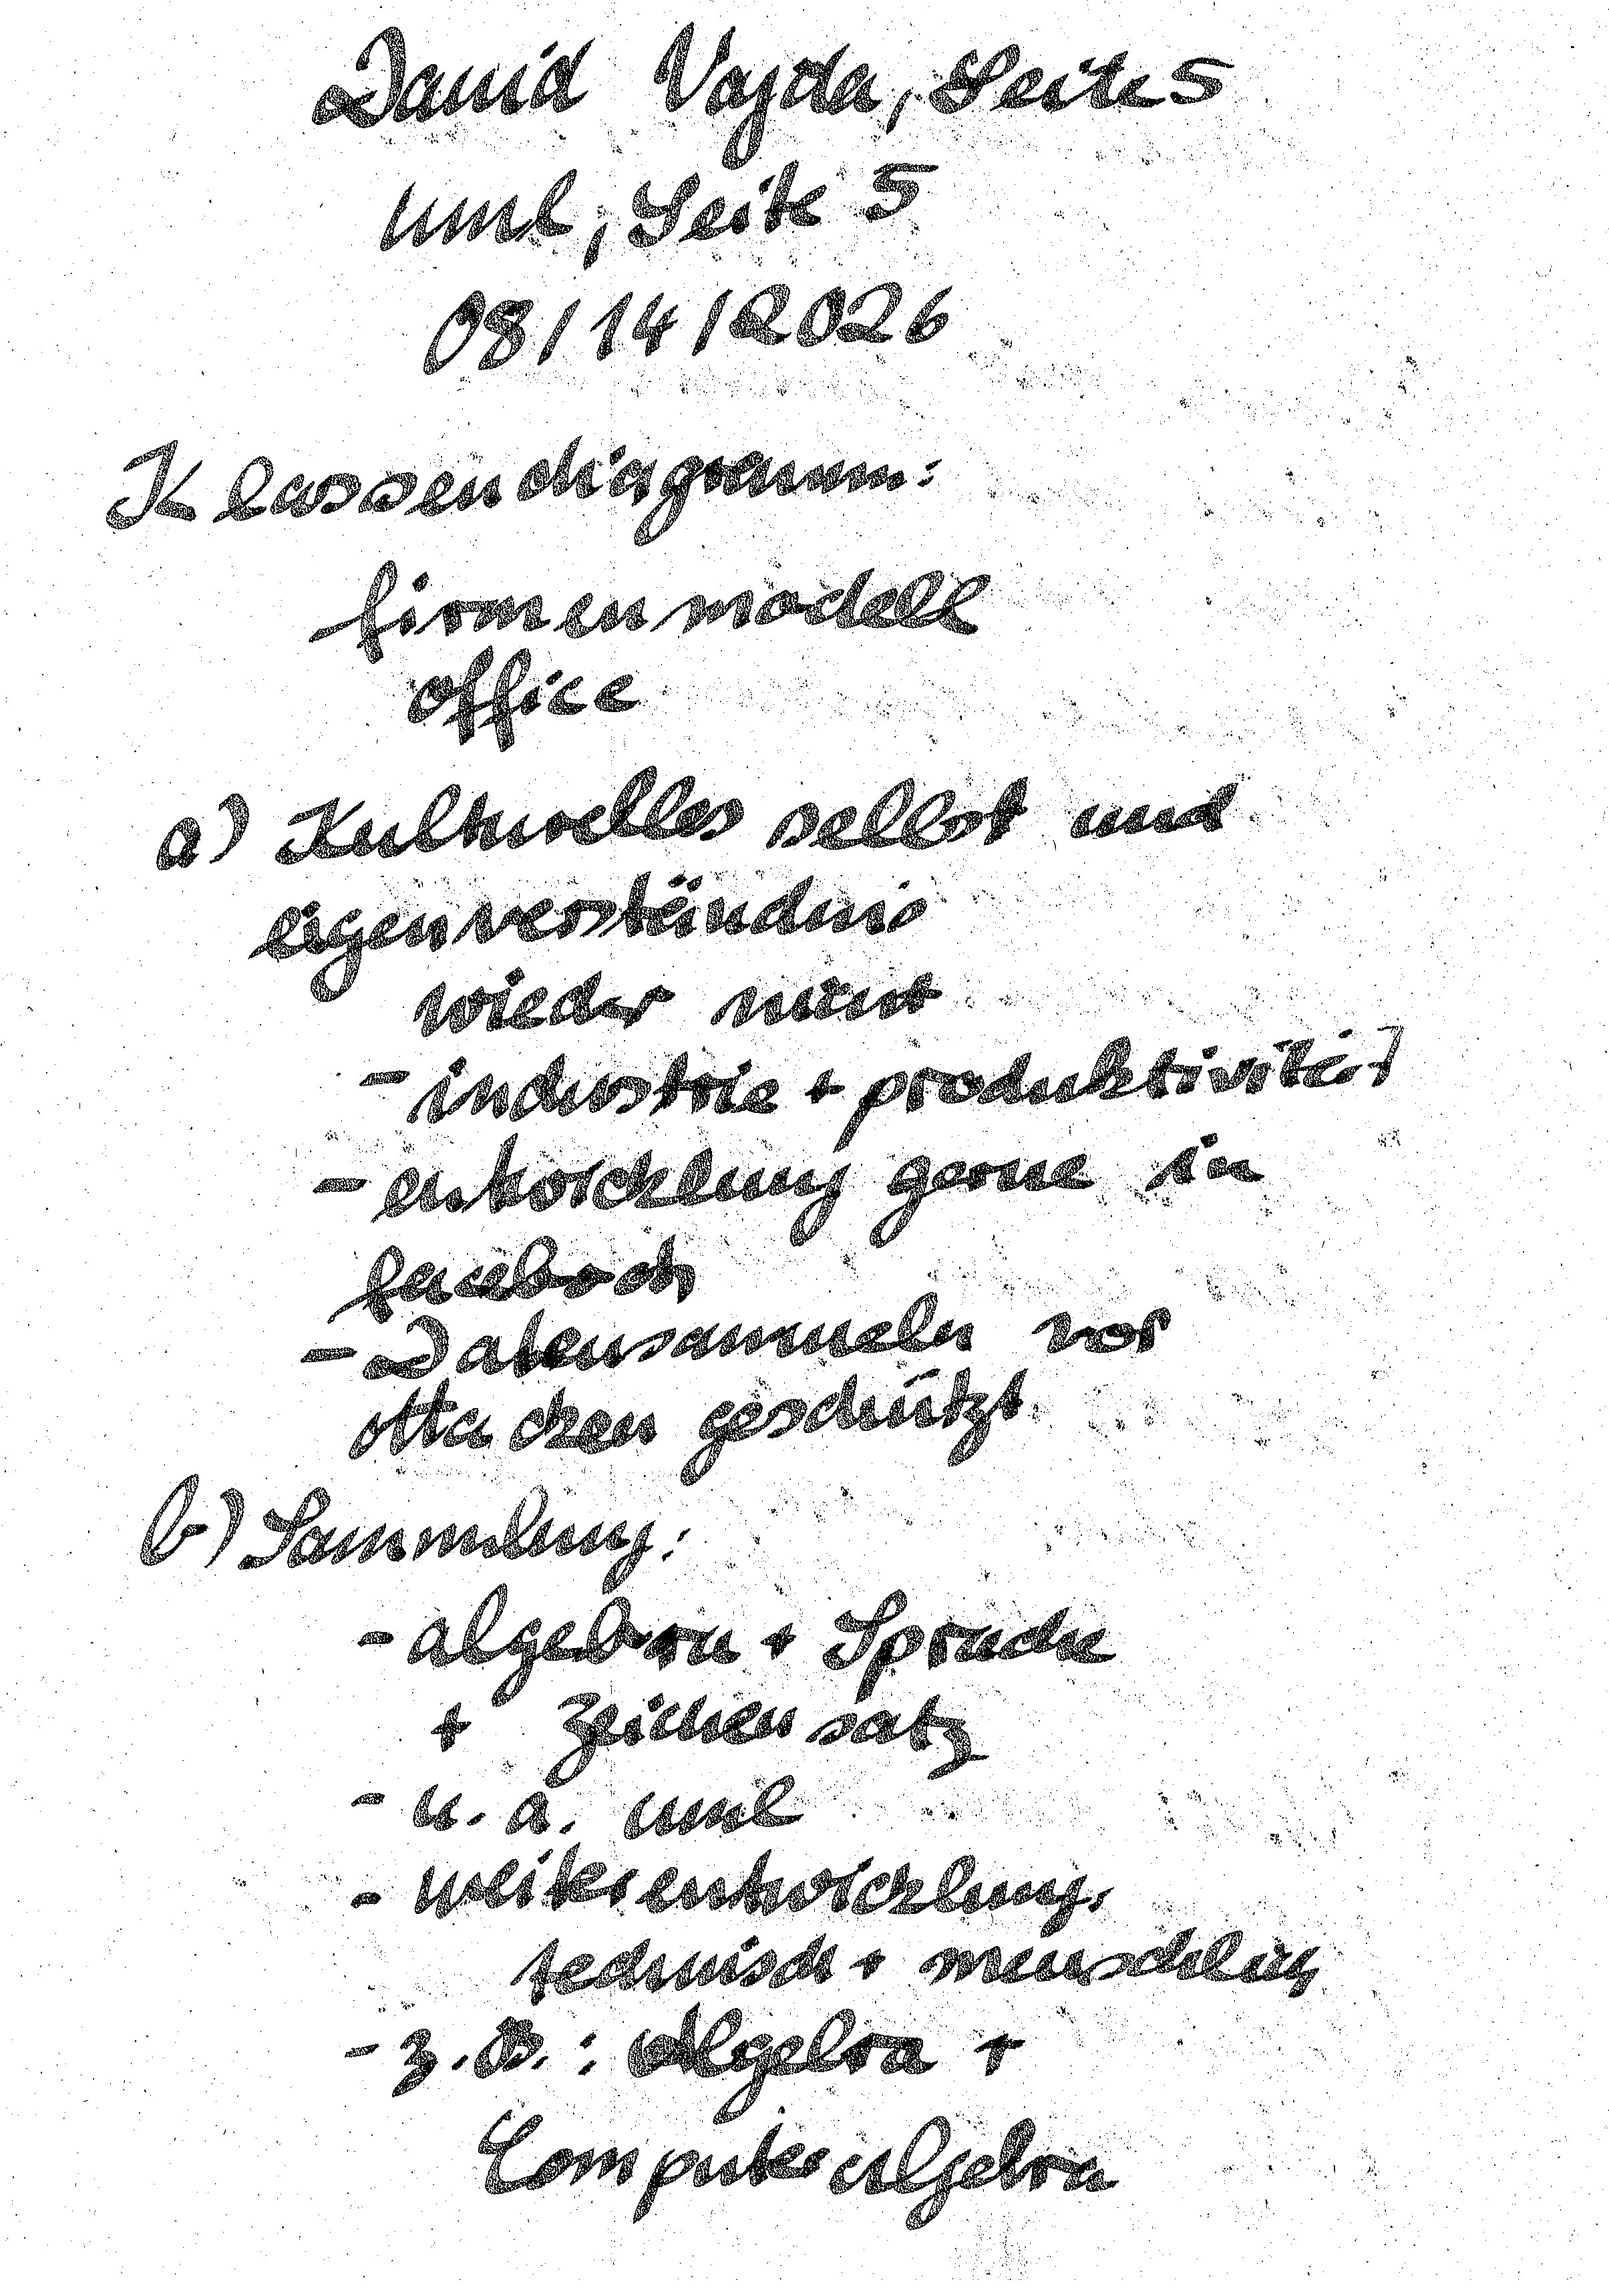 David Vajda, Seite 5
uml, Seite 5
08/14/2026
Klassendiagramm:
firmenmodell
office
a) Kulturelles selbst und
eigenverständnis
wieder
- industrie + produktivität
- entwicklung gerne in
facebook
- Datensammeln vor
attacken geschützt.
b) Sammlung:
- algebra + Sprache
+ Zeichensatz
- u. a. uml
- weiterentwicklung,
technisch + menschlich
- z. B. : Algebra +
Computeralgebra